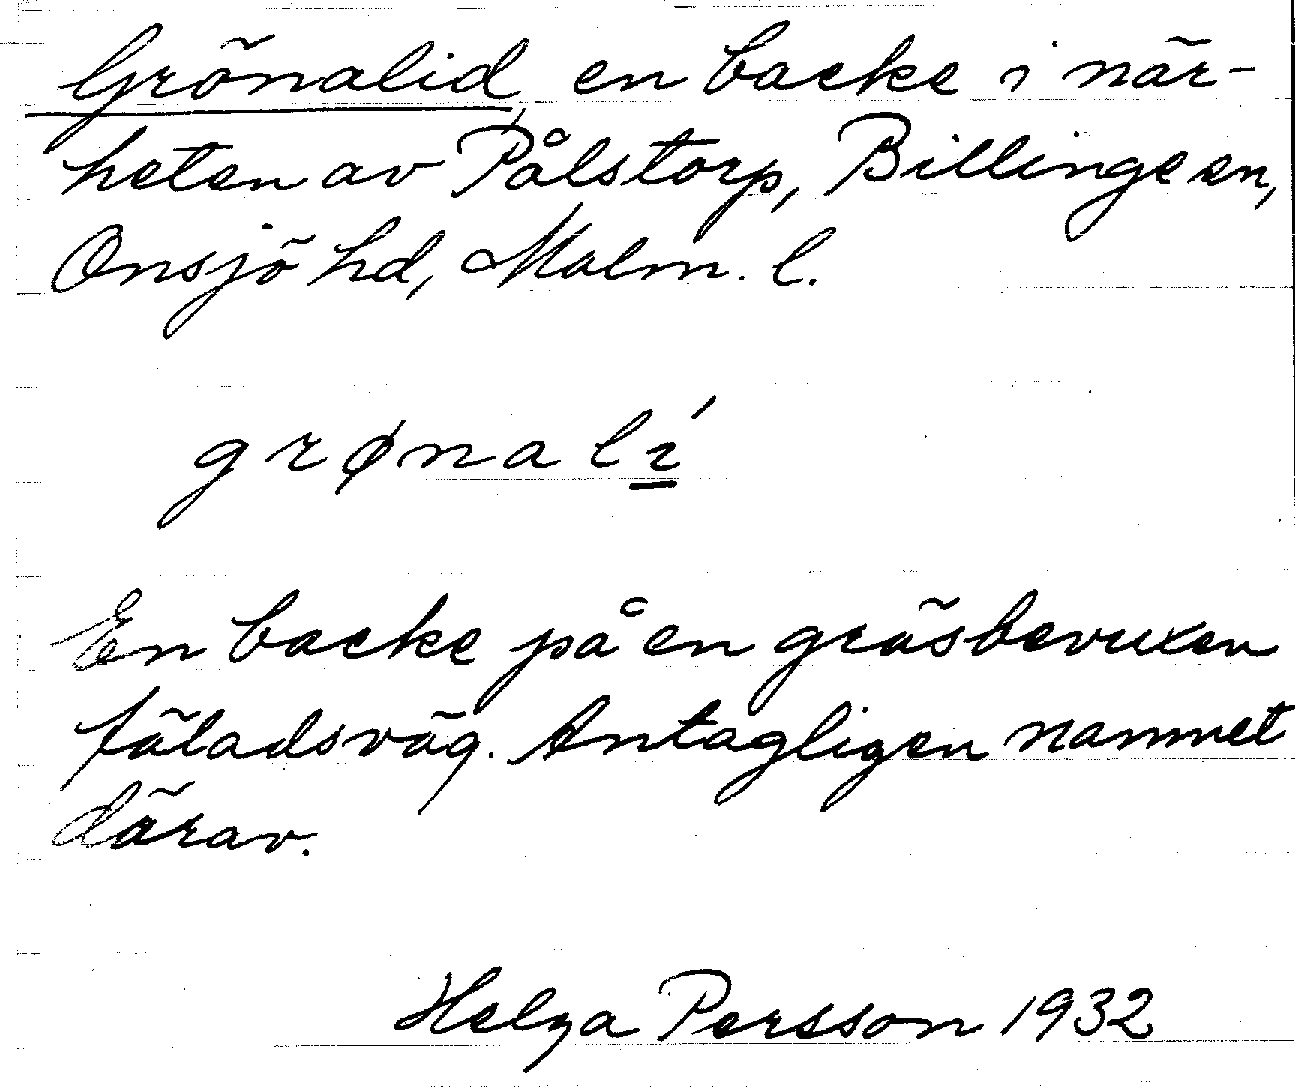 Grönalid, en backe i när-
heten av Pålstorp, Billinge sn,
Onsjö hd, Malm. l.
grønalí
En backe på en gräsbevuxen
fäladsväg. Antagligen namnet
därav.
Helga Persson 1932